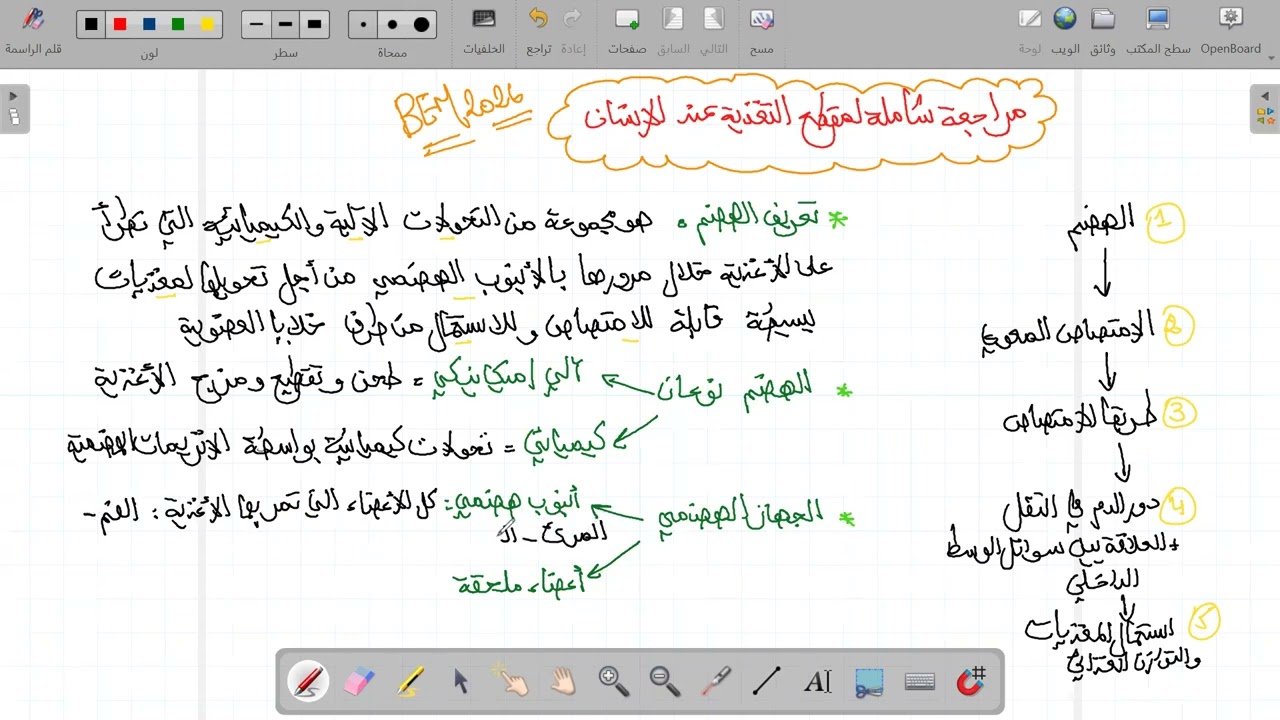 قلم الراسمة
لون
سطر
ممحاة
الخلفيات
تراجع
إعادة
صفحات
السابق
التالي
مسح
لوحة
الويب
وثائق
سطح المكتب
OpenBoard
BEM 2026
مراجعة شاملة لمقطع التغذية عند الإنسان
* تعريف الهضم: هو مجموعة من التحولات الآلية والكيميائية التي تطرأ
على الأغذية خلال مرورها بالأنبوب الهضمي من أجل تحويلها لمغذيات
بسيطة قابلة للامتصاص وللاستعمال من طرف خلايا العضوية
* الهضم نوعان
آلي / ميكانيكي = طحن وتقطيع ومزج الأغذية
كيميائي = تحولات كيميائية بواسطة الانزيمات الهضمية
* الجهاز الهضمي
أنبوب هضمي: كل الأعضاء التي تمر بها الأغذية: الفم -
المرئ - الـ
أعضاء ملحقة
1 الهضم
2 الامتصاص المعوي
3 طريقا الامتصاص
4 دور الدم في النقل
+ العلاقة بين سوائل الوسط
الداخلي
5 استعمال المغذيات
والتوازن الغذائي
AI